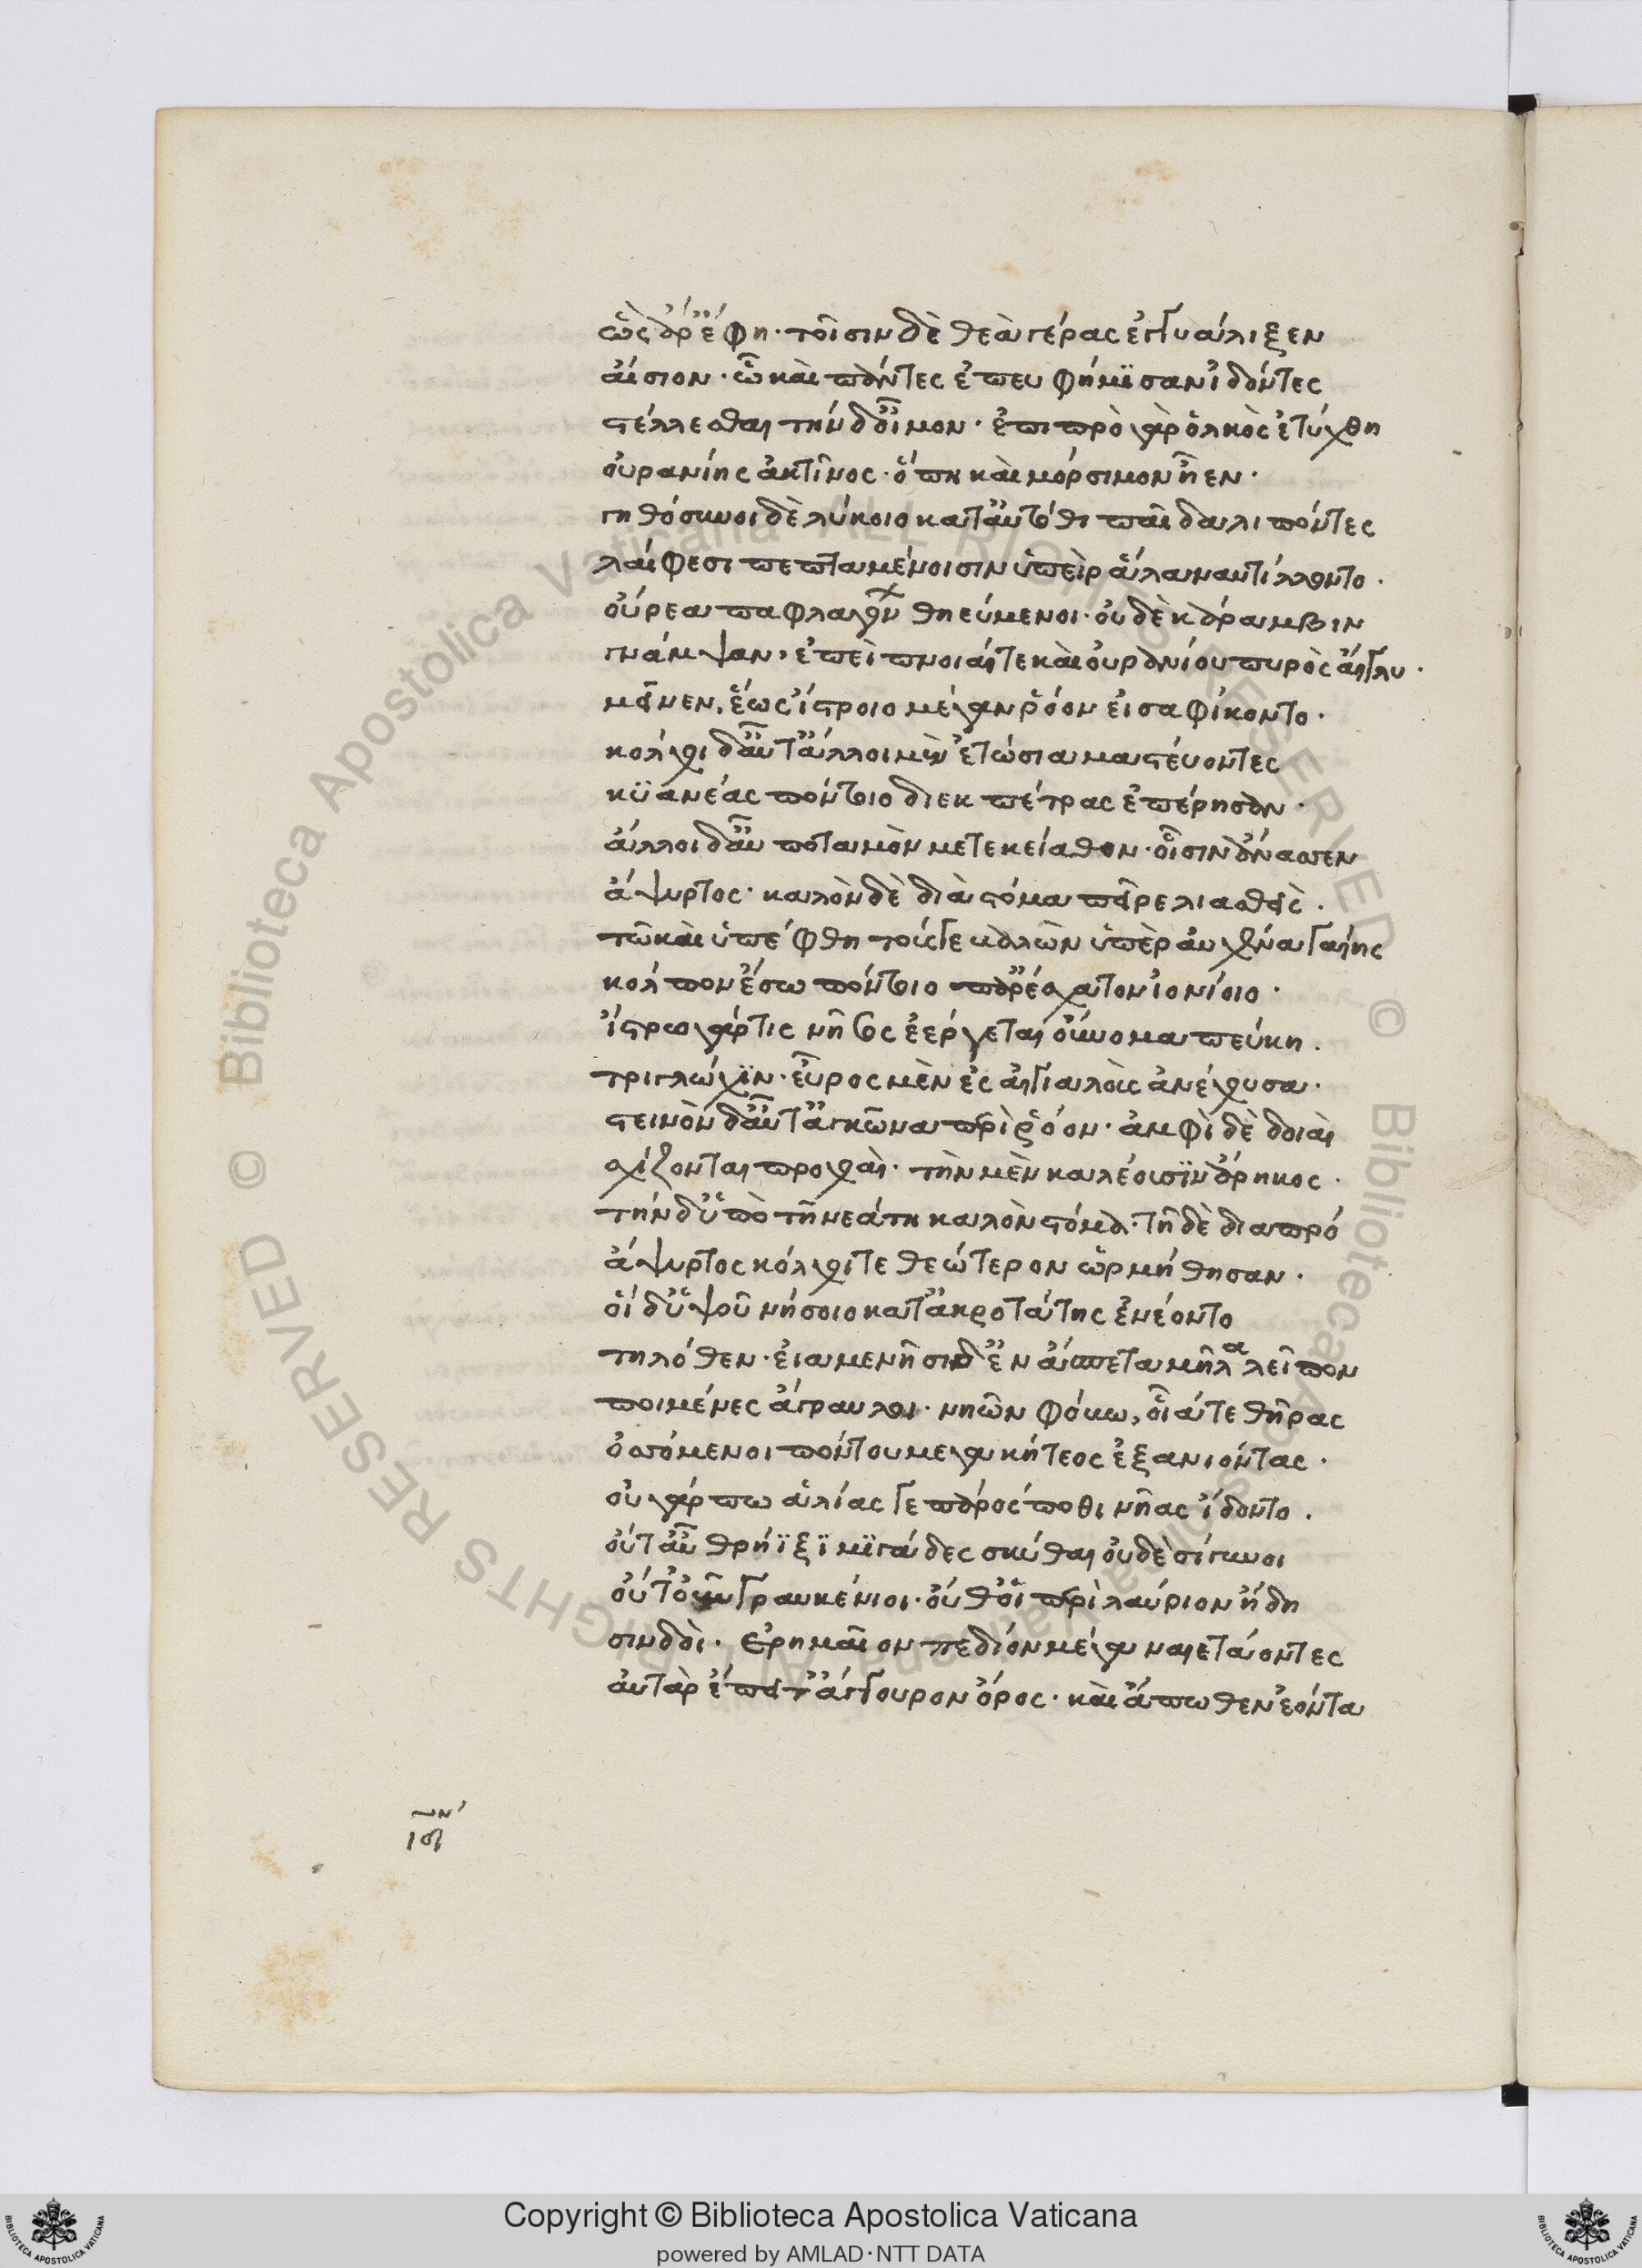 ὣς ἄρ' ἔφη· τοῖσιν δὲ θεὰ τέρας ἐγγυάλιξεν
αἴσιον· ὧ καὶ πάντες ἐπευφήμϊσαν ἰδόντες
στέλλεσθαι τήνδ' οἶμον· ἐπιπρὸ γὰρ ὁλκὸς ἐτύχθη
οὐρανίης ἀκτῖνος· ὅπη καὶ μόρσιμον ἦεν·
γηθόσυνοι δὲ λύκοιο κατ' αὐτόθι παῖδα λιπόντες
λαίφεσι πεπταμένοισιν ὑπεὶρ ἅλα ναυτίλλοντο·
οὔρεα παφλαγόνων θηεύμενοι· οὐδὲ κάραμβιν
γνάμψαν, ἐπεὶ πνοιαί τε καὶ οὐρανίου πυρὸς αἴγλη·
μεῖνεν, ἕως ἴστροιο μέγαν ῥόον εἰσαφίκοντο·
κόλχοι δ' αὖτ' ἄλλοι μὲν ἐτώσια μαστεύοντες
κϋανέας πόντοιο διεκ πέτρας ἐπέρησαν·
ἄλλοι δ' αὖ ποταμὸν μετεκείαθον· οἷσιν ἄνασσεν
ἄψυρτος· καλὸν δὲ διὰ στόμα πεῖρε λιασθείς·
τῶ καὶ ὑπέφθη τούς γε βαλὼν ὑπὲρ αὐχένα γαίης
κόλπον ἔσω πόντοιο παρέσχατον ἰονίοιο·
ἴστρω γάρ τις νῆσος ἐέργεται οὔνομα πεύκη·
τριγλώχϊν· εὖρος μὲν ἐς αἰγιαλοὺς ἀνέχουσα·
στεινὸν δ' αὖτ' ἀγκῶνα περὶ ῥόον· ἀμφὶ δὲ δοιαὶ
σχίζονται προχοαί· τὴν μὲν καλέουσϊν ἄρηκος·
τὴν δ' ὑπὸ τῆ νεάτη καλὸν στόμα· τῆ δὲ διαπρό
ἄψυρτος κόλχοι τε θεώτερον ὡρμήθησαν·
οἱ δ' ὑψοῦ νήσοιο κατ' ἀκροτάτης ἐνέοντο
τηλόθεν· εἱαμενῆσι δ' ἐν ἄσπετα μῆλα λεῖπον
ποιμένες ἄγραυλοι· νηῶν φόβω, οἷά τε θῆρας
ὀσσόμενοι πόντου μεγακήτεος ἐξανιόντας·
οὐ γάρ πω ἁλίας γε πάρος ποθι νῆας ἴδοντο·
οὔτ' αὖ θρήϊξϊ μϊγάδες σκύθαι οὐδὲ σίγυνοι
οὔτ' οὖν γραυκένιοι· οὔθ' οἱ περὶ λαύριον ἤδη
σινδοὶ· ἐρημαῖον πεδίον μέγα ναιετάοντες
αὐτὰρ ἐπεί τ' ἄγγουρον ὄρος· καὶ ἄπωθεν ἐόντα